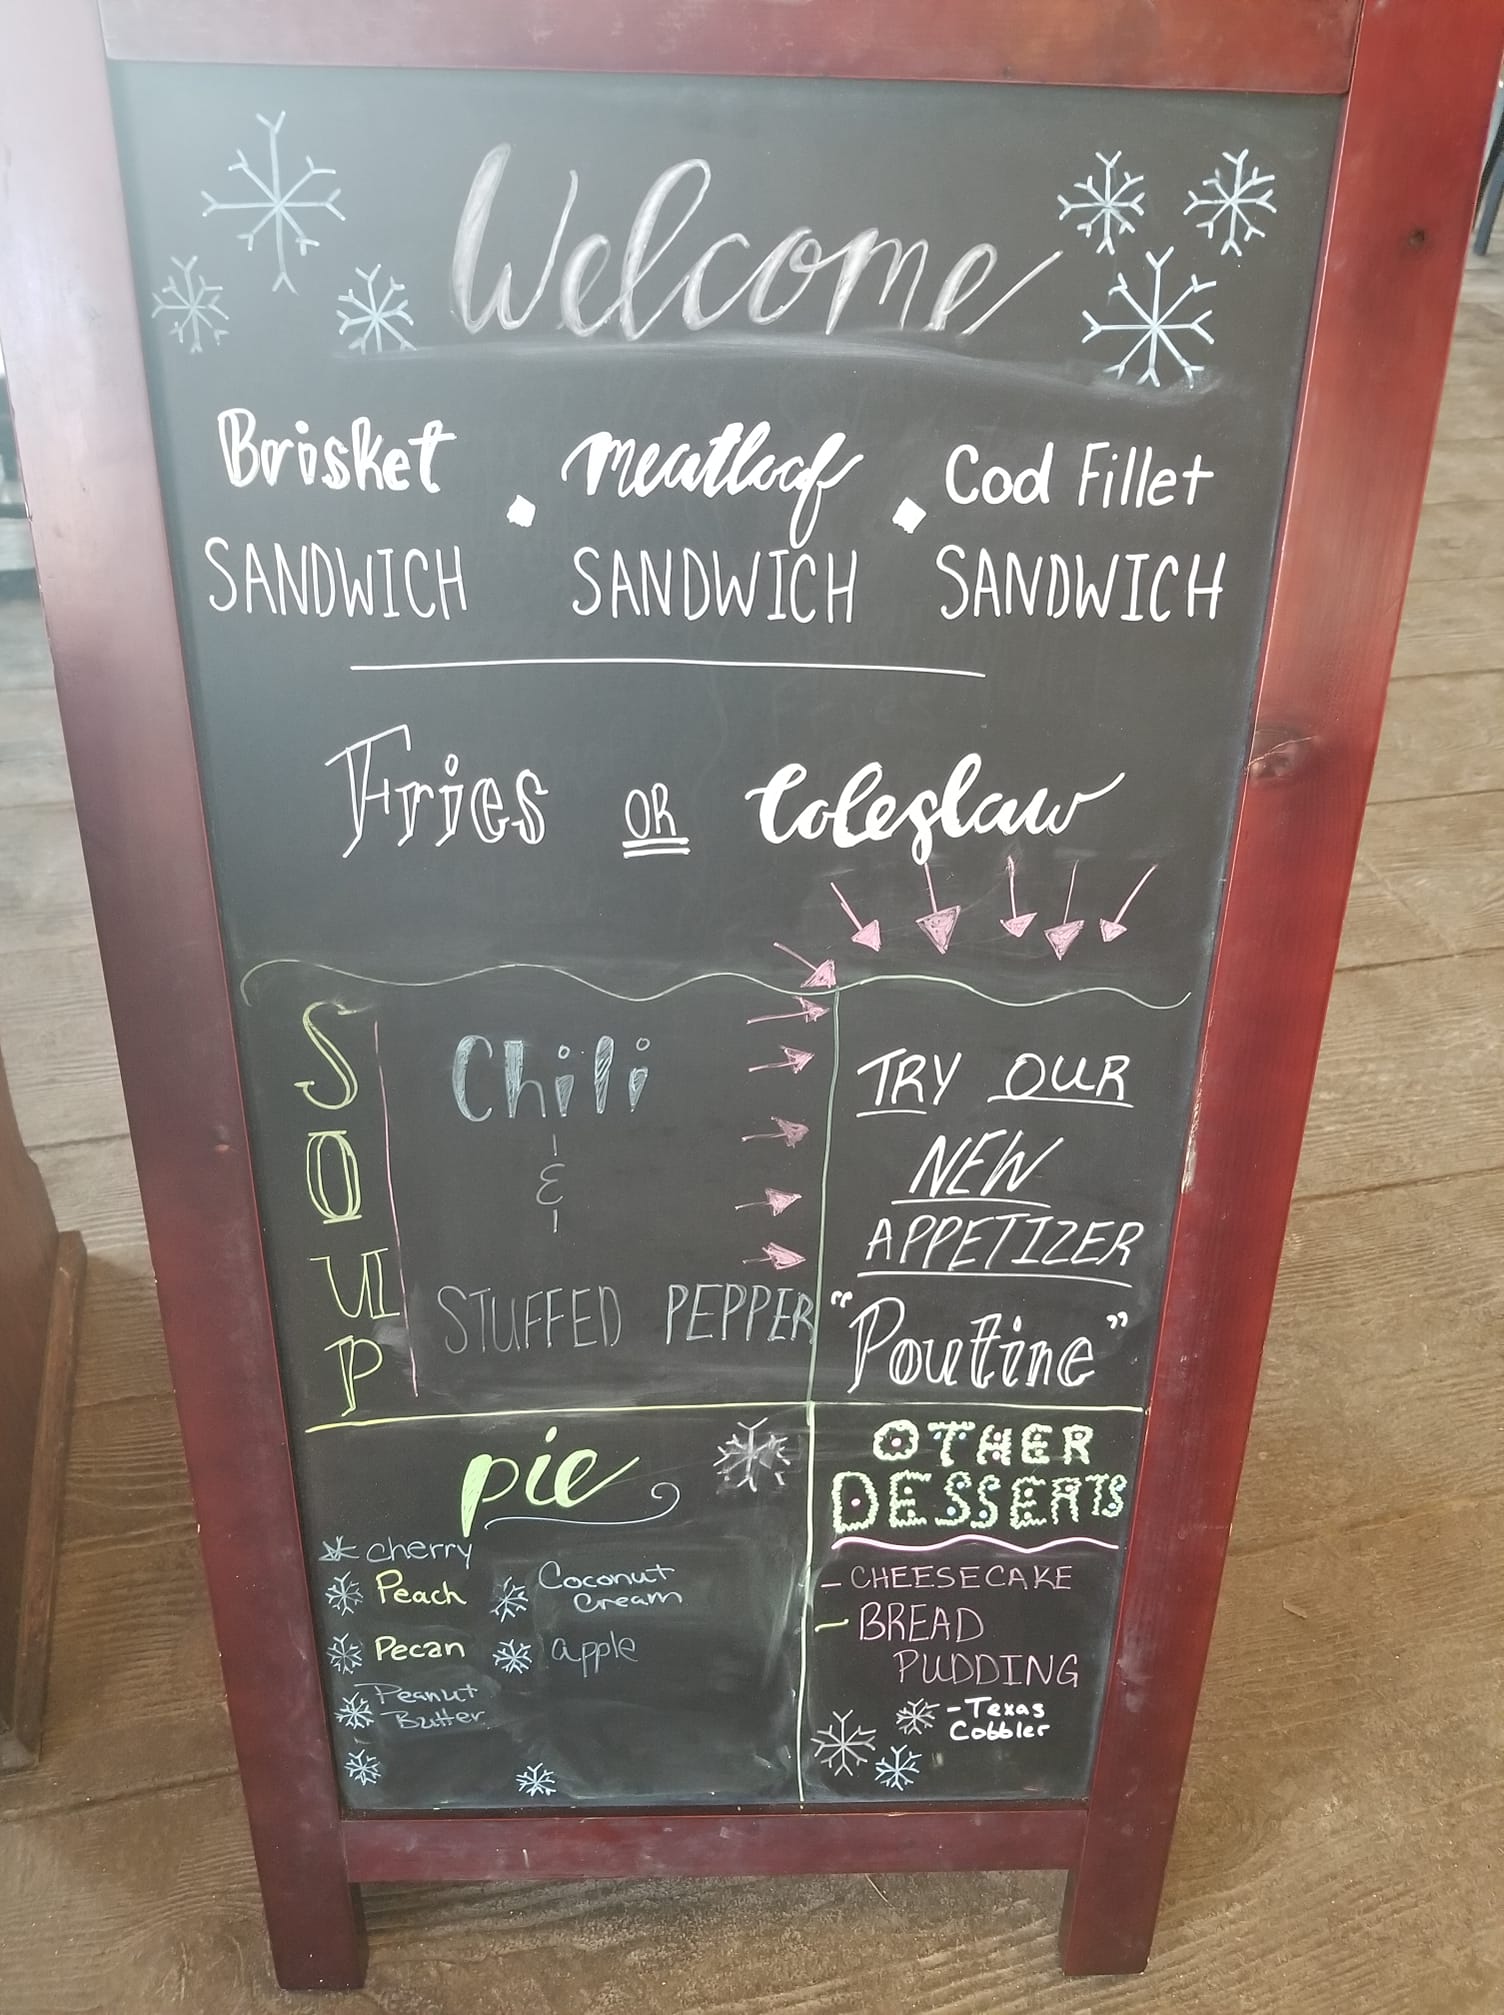 Welcome
Brisket · Meatloaf · Cod Fillet
SANDWICH SANDWICH SANDWICH
Fries OR Coleslaw
SOUP
Chili
&
STUFFED PEPPER
TRY OUR
NEW
APPETIZER
"Poutine"
pie
cherry
Peach
Pecan
Peanut
Butter
Coconut
Cream
apple
OTHER
DESSERTS
- CHEESECAKE
- BREAD
PUDDING
- Texas
Cobbler